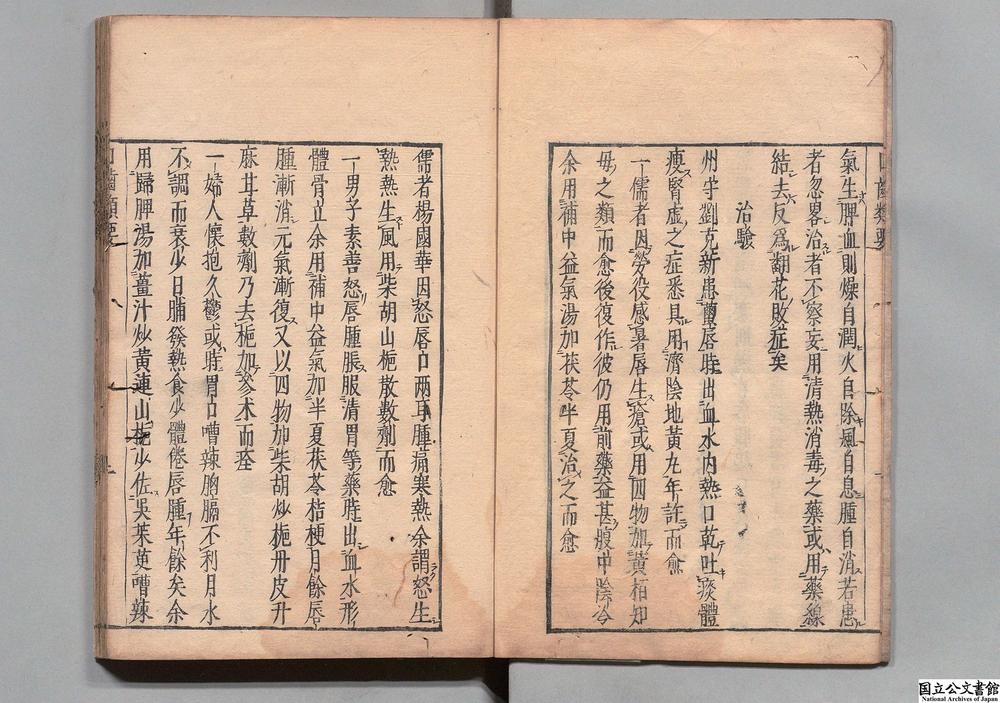 氣生脾血則燥自潤火自除風自息腫自消若患
者忽畧治者不察妄用清熱消毒之藥或用藥線
結去反爲翻花敗症矣
治驗
州守劉克新患繭唇時出血水内熱口乾吐痰體
瘦腎虛之症悉具用濟陰地黃丸年許而愈
一儒者因勞役感暑唇生瘡或用四物加黃栢知
母之類而愈後復作彼仍用前藥益甚腹中陰冷
余用補中益氣湯加茯苓半夏治之而愈
口齒類要
儒者楊國華因怒唇口兩耳腫痛寒熱余謂怒生
熱熱生風用柴胡山梔散數劑而愈
一男子素善怒唇腫脹服清胃等藥時出血水形
體骨立余用補中益氣加半夏茯苓桔梗月餘唇
腫漸消元氣漸復又以四物加柴胡炒梔丹皮升
麻甘草數劑乃去梔加參术而痊
一婦人懷抱久鬱或時胃口嘈辣胸膈不利月水
不調而衰少日晡發熱食少體倦唇腫年餘矣余
用歸脾湯加薑汁炒黃連山梔少佐吳茱萸嘈辣
口齒類要
国立公文書館
National Archives of Japan